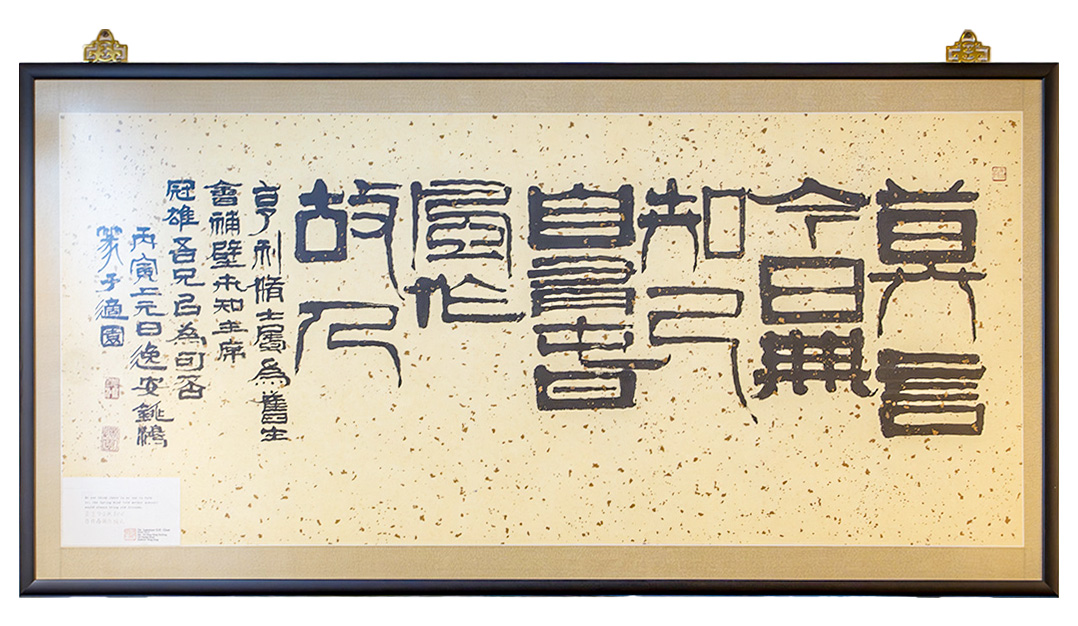 莫言
今日無
知己
自
作
故人
亨利脩士屬為舊生
會補壁未知主席
冠雄吾兄以為可否
丙寅上元日逸安銚鴻
篆于適園